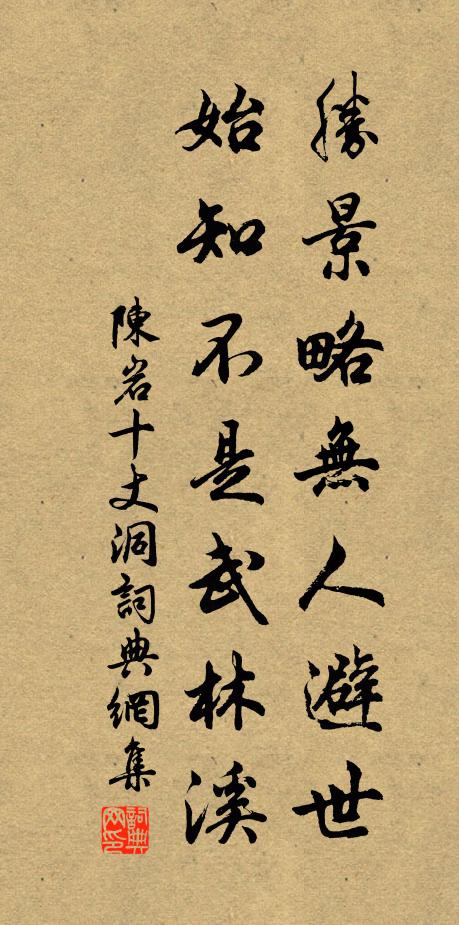 勝景略無人避世
始知不是武林溪
陳岩十丈洞詞典網集
詞典网印